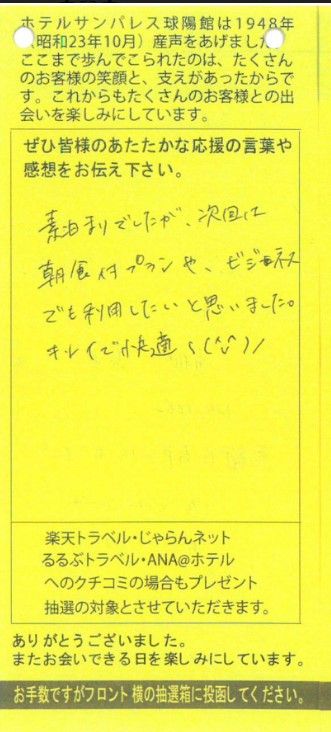 ホテルサンパレス球陽館は1948年
(昭和23年10月)産声をあげました。
ここまで歩んでこられたのは、たくさん
のお客様の笑顔と、支えがあったからで
す。これからもたくさんのお客様との出
会いを楽しみにしています。
ぜひ皆様のあたたかな応援の言葉や
感想をお伝え下さい。
素泊まりでしたが、次回は
朝食付プランや、ビジネス
でも利用したいと思いました。
キレイで快適\(^^)/
楽天トラベル・じゃらんネット
るるぶトラベル・ANA@ホテル
へのクチコミの場合もプレゼント
抽選の対象とさせていただきます。
ありがとうございました。
またお会いできる日を楽しみにしています。
お手数ですがフロント横の抽選箱に投函してください。